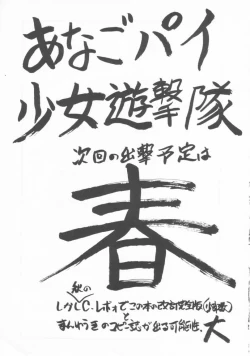 あなごパイ
少女遊撃隊
次回の出撃予定は
春
秋の
しかしC.レボでこの本の改訂完全版(小部数)
と
まんゆうきのコピー誌が出る可能性大